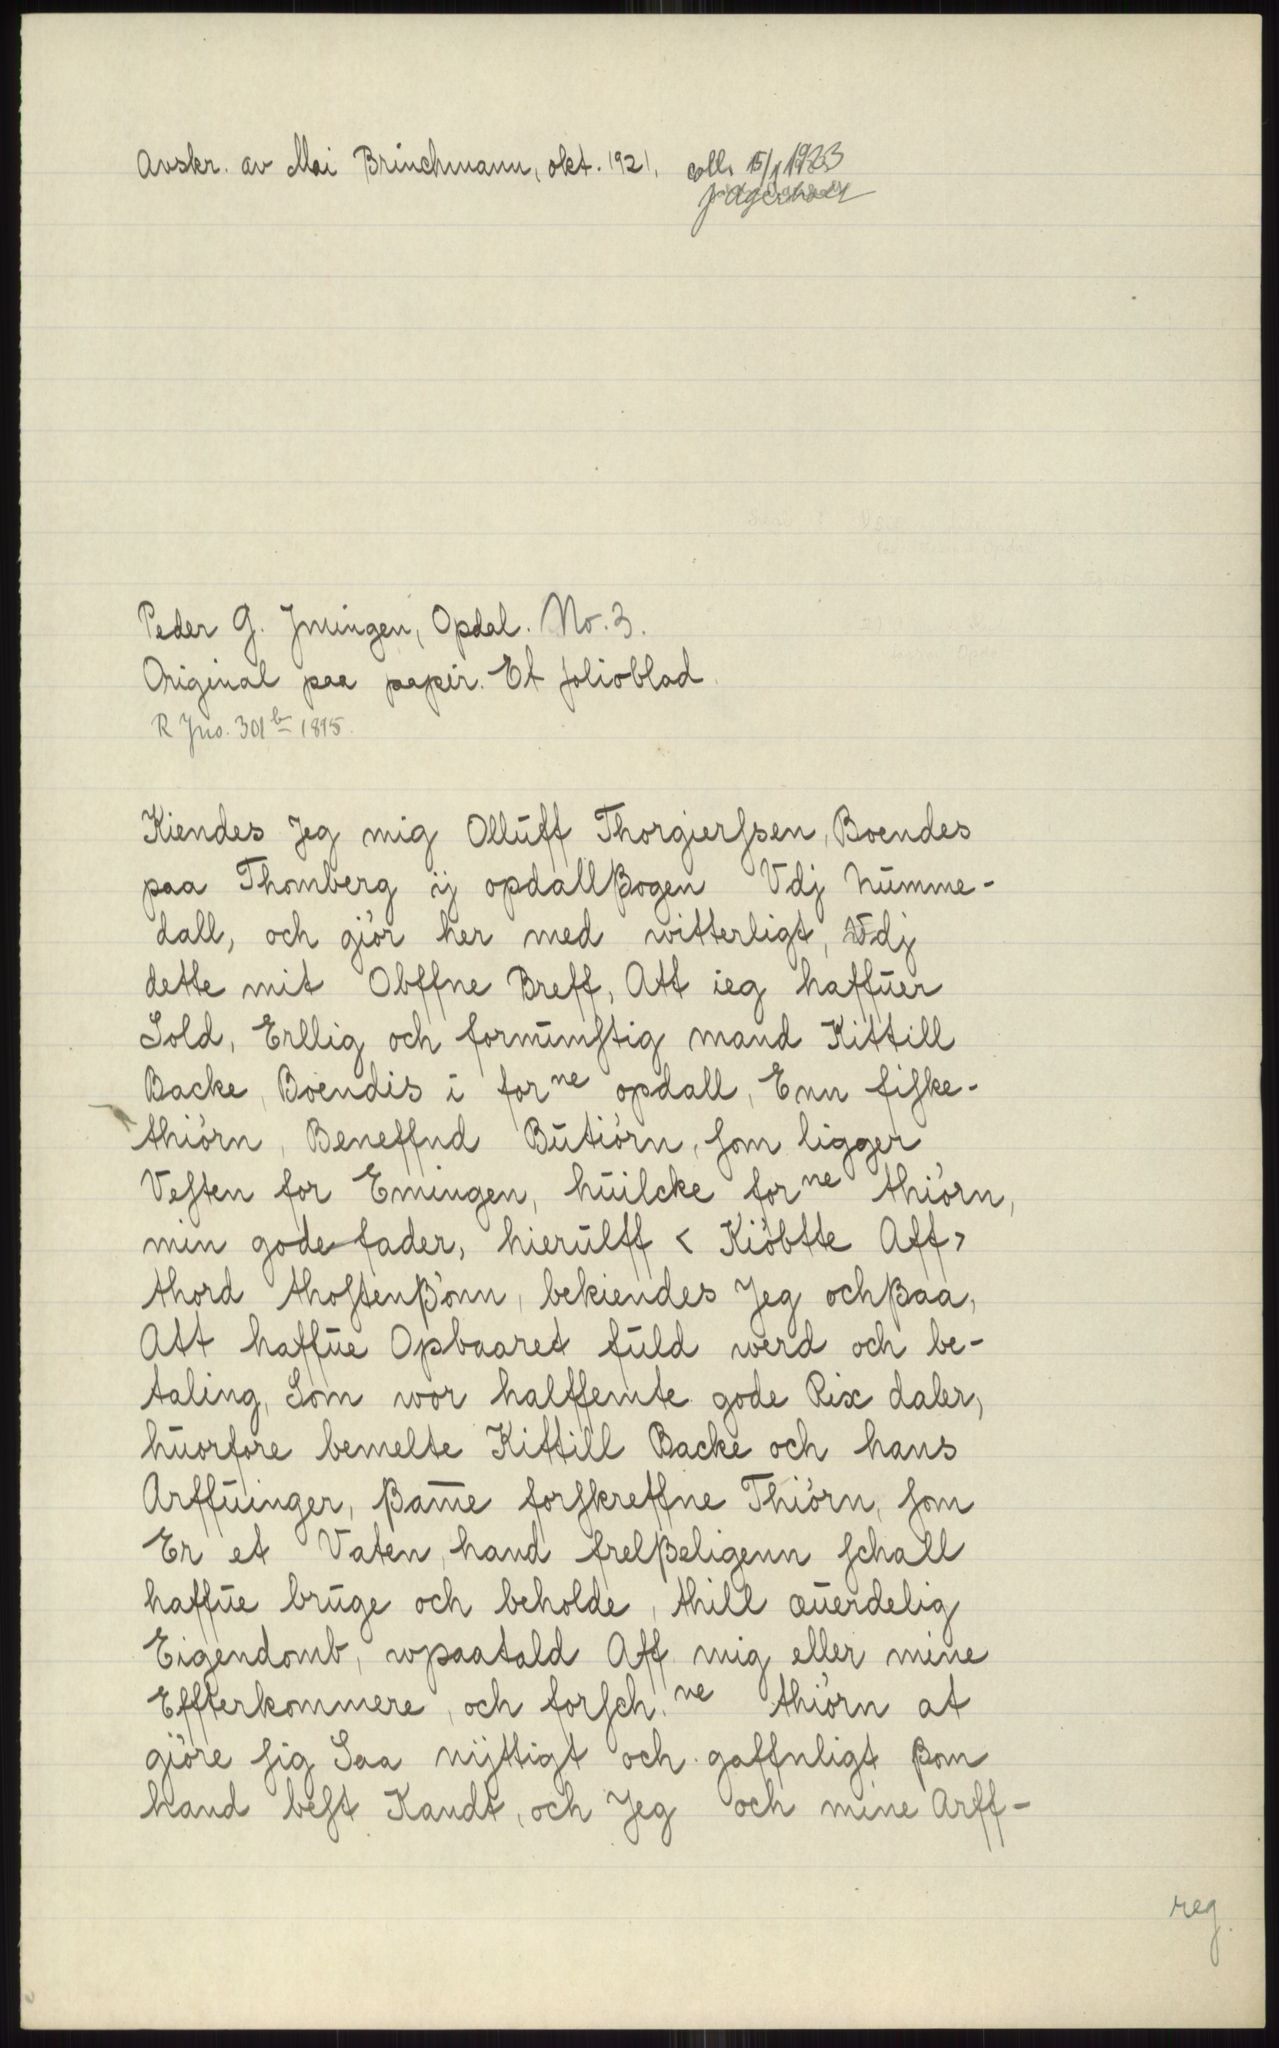 Avskr. av Mai Brinchmann, okt. 1921. coll. 15/1 1923
Peder G. Jmingen, Opdal. No. 3.
Original paa papir. Et folioblad.
R Jno. 301 b 1895.
Kiendes Jeg mig Olluff Thorgierſsen, Boendes
paa Thomberg ij opdallßogen Vdj Numme-
dall, och giör her med witterligt, Vdj
dette mit Obffne Breff, Att ieg haffuer
Sold, Erllig och fornumſtig mand Kittill
Backe, Boendis i forne opdall, Enn fiſke-
thiörn, Beneffnd Butiörn, ſom ligger
Veſten for Emingen, huilcke forne thiörn,
min gode fader, hierulff < Kiöbtte Aff >
thord thoſtenßönn, bekiendes Jeg ochßaa,
Att haffue Opbaaret fuld werd och be-
taling, Som wor halffemte gode Rix daler,
huorfore bemelte Kittill Backe och hans
Arffuinger, ßam̅e forſkreffne Thiörn, ſom
Er et Vaten, hand frelßeligenn ſchall
haffue bruge och beholde, thill æuerdelig
Eigendomb, wpaatald Aff mig eller mine
Effterkommere, och forſch.ne thiörn at
giöre ſig Saa nÿttigt och gaffnligt ßom
hand beſt Kandt, och Jeg och mine Arff-
reg.